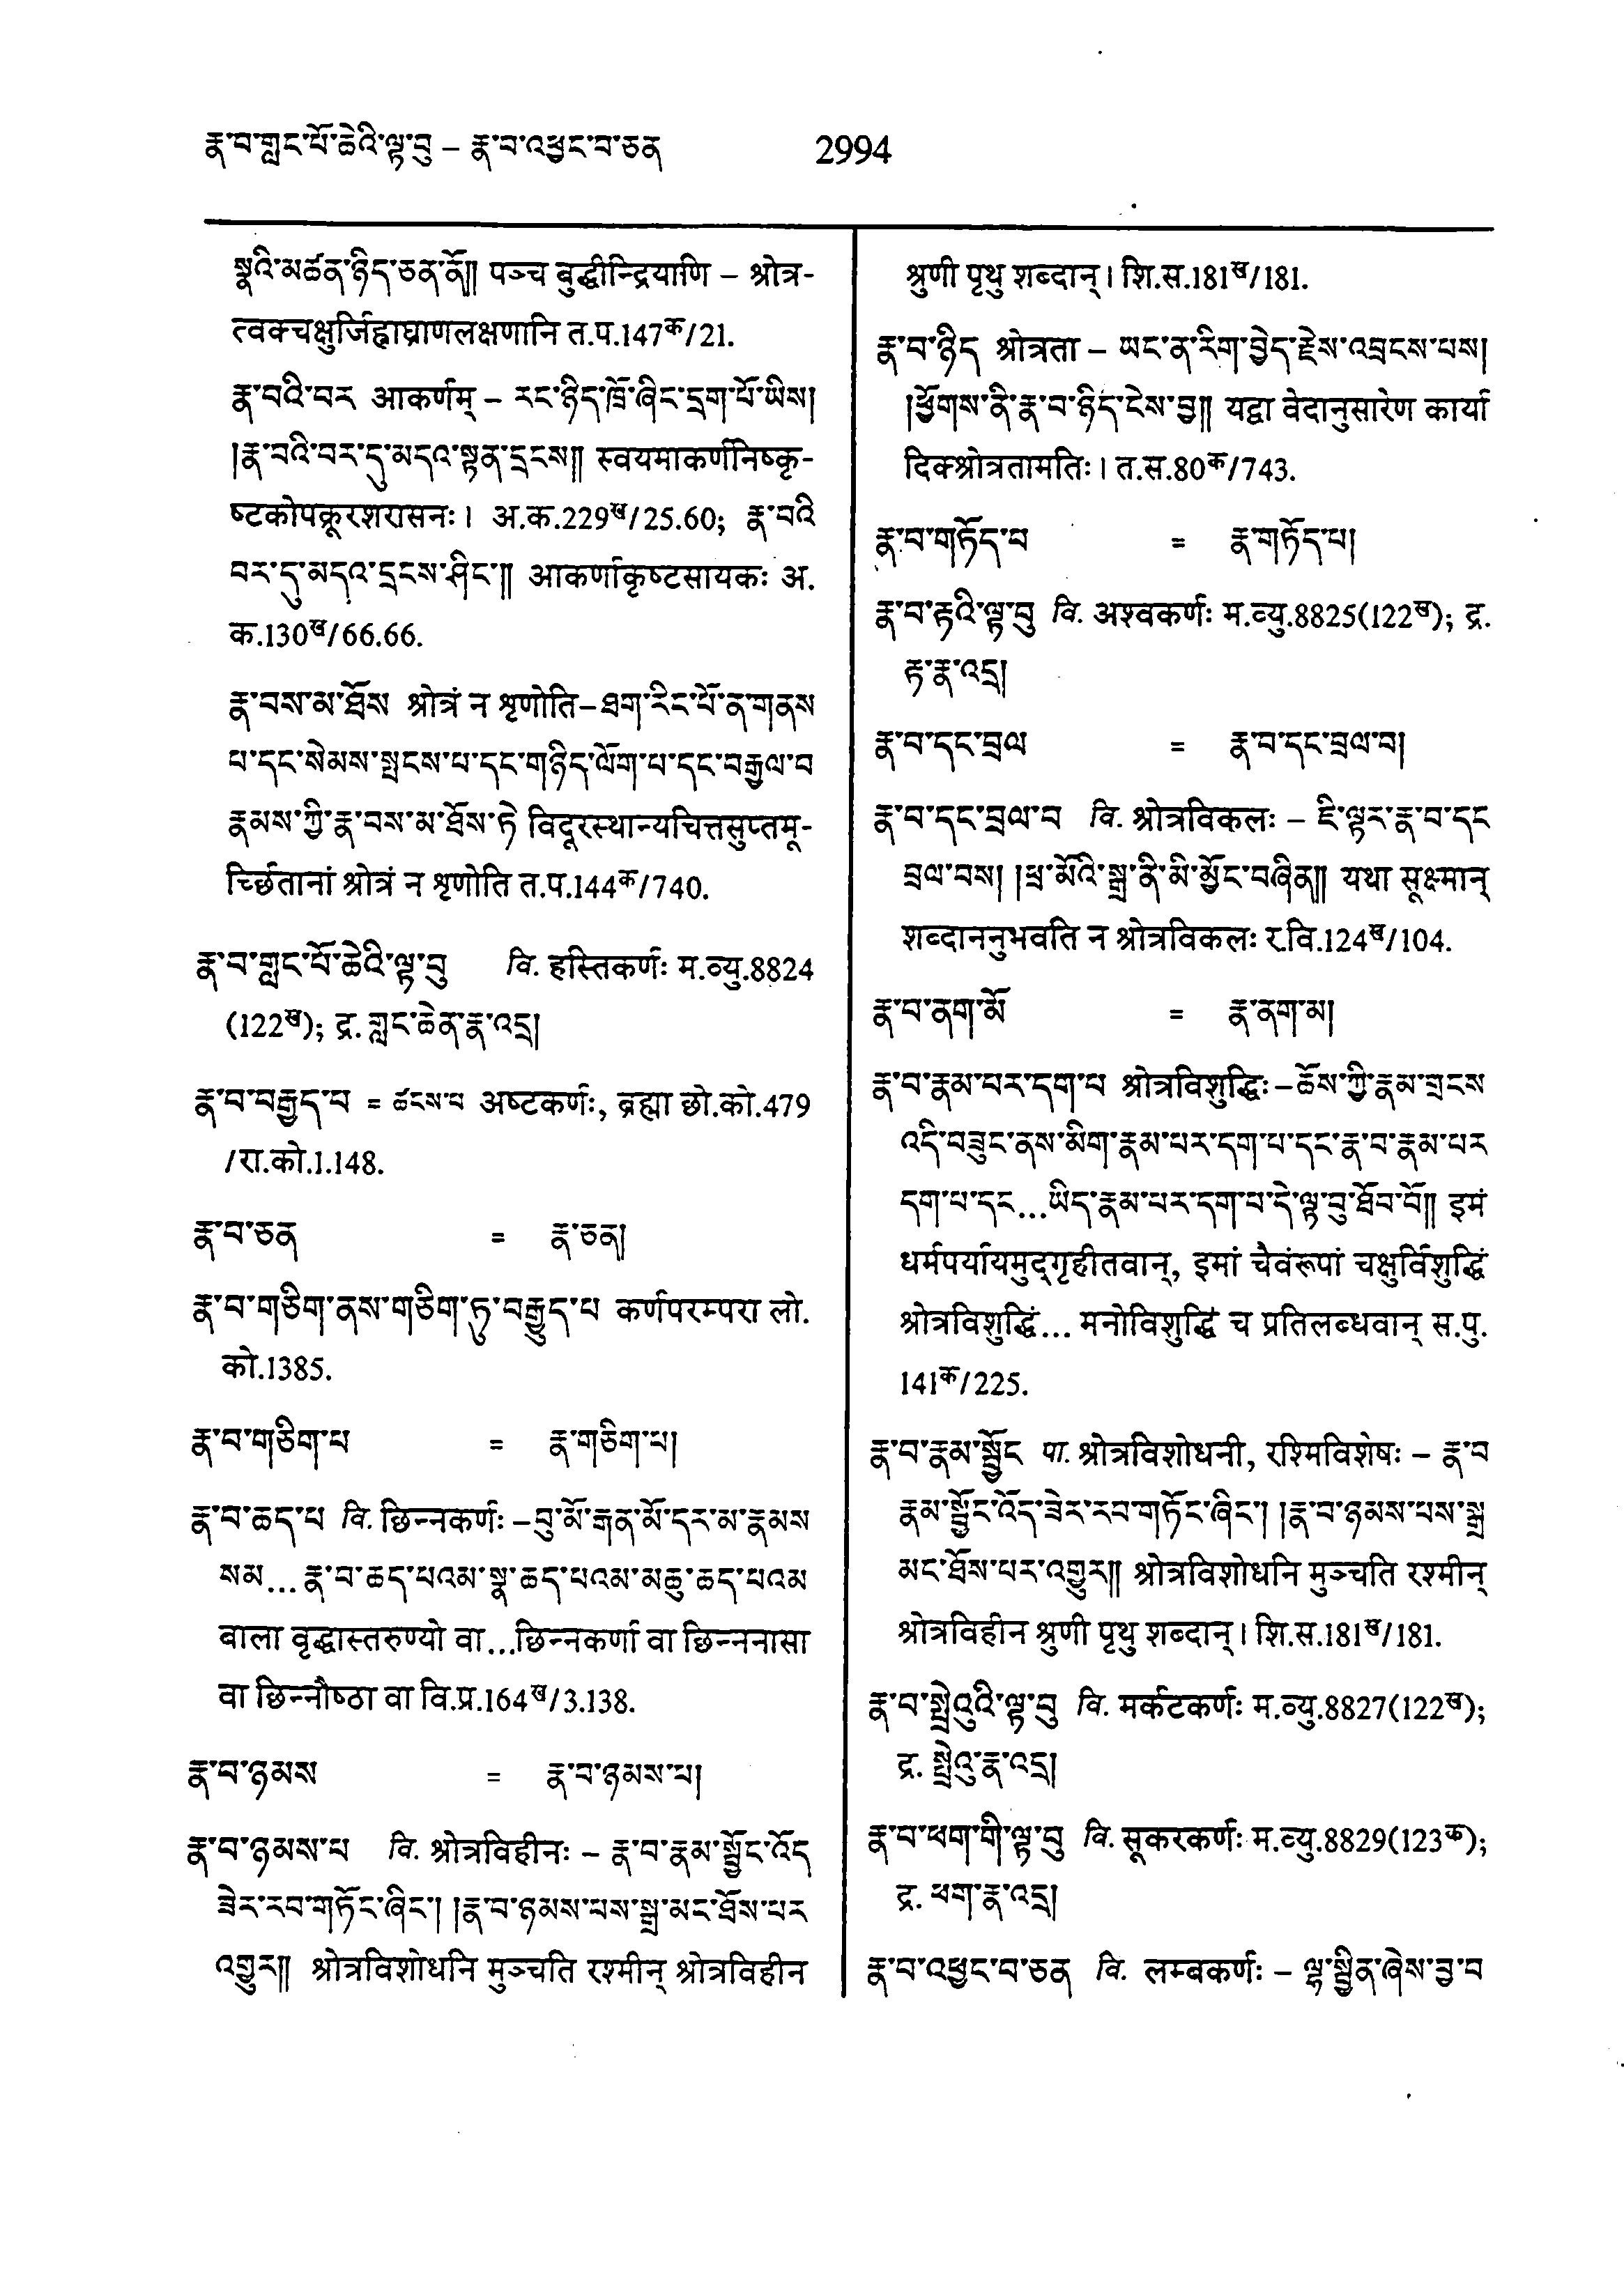 རྣ་བ་གླང་པོ་ཆེའི་ལྟ་བུ – རྣ་བ་འཕྱང་བ་ཅན 2994
སྣའི་མཚན་ཉིད་ཅན་ནོ༎ पञ्च बुद्धीन्द्रियाणि – श्रोत्र-
त्वक्चक्षुर्जिह्वाघ्राणलक्षणानि त.प.147क/21.
རྣ་བའི་བར आकर्णम् – རང་ཉིད་ཁྲོ་ཞིང་དྲག་པོ་ཡིས།
།རྣ་བའི་བར་དུ་མདའ་སྟན་དྲངས༎ स्वयमाकर्णनिष्कृ-
ष्टकोपक्रूरशरासनः। अ.क.229ख/25.60; རྣ་བའི
བར་དུ་མདའ་དྲངས་ཤིང་༎ आकर्णाकृष्टसायकः अ.
क.130ख/66.66.
རྣ་བས་མ་ཐོས श्रोत्रं न शृणोति–ཐག་རིང་པོ་ན་གནས
པ་དང་སེམས་སྤངས་པ་དང་གཉིད་ལོག་པ་དང་བརྒྱལ་བ
རྣམས་ཀྱི་རྣ་བས་མ་ཐོས་ཏེ विदूरस्थान्यचित्तसुप्तमू-
र्च्छितानां श्रोत्रं न शृणोति त.प.144क/740.
རྣ་བ་གླང་པོ་ཆེའི་ལྟ་བུ वि. हस्तिकर्णः म.व्यु.8824
(122ख); द्र. གླང་ཆེན་རྣ་འདྲ།
རྣ་བ་བརྒྱད་པ = ཚངས་པ अष्टकर्णः, ब्रह्मा छो.को.479
/रा.को.1.148.
རྣ་བ་ཅན = རྣ་ཅན།
རྣ་བ་གཅིག་ནས་གཅིག་ཏུ་བརྒྱུད་པ कर्णपरम्परा लो.
को.1385.
རྣ་བ་གཅིག་པ = རྣ་གཅིག་པ།
རྣ་བ་ཆད་པ वि. छिन्नकर्णः –བུ་མོ་རྒན་མོ་དར་མ་རྣམས
སམ... རྣ་བ་ཆད་པའམ་སྣ་ཆད་པའམ་མཆུ་ཆད་པའམ
बाला वृद्धास्तरुण्यो वा...छिन्नकर्णा वा छिन्ननासा
वा छिन्नौष्ठा वा वि.प्र.164ख/3.138.
རྣ་བ་ཉམས = རྣ་བ་ཉམས་པ།
རྣ་བ་ཉམས་པ वि. श्रोत्रविहीनः – རྣ་བ་རྣམ་སྦྱོང་འོད
ཟེར་རབ་གཏོང་ཞིང་། །རྣ་བ་ཉམས་པས་སྒྲ་མང་ཐོས་པར
འགྱུར༎ श्रोत्रविशोधनि मुञ्चति रश्मीन् श्रोत्रविहीन
श्रुणी पृथु शब्दान्। शि.स.181ख/181.
རྣ་བ་ཉིད श्रोत्रता – ཡང་ན་རིག་བྱེད་རྗེས་འབྲངས་པས།
།ཕྱོགས་ནི་རྣ་བ་ཉིད་ངེས་བྱ༎ यद्वा वेदानुसारेण कार्या
दिक्श्रोत्रतामतिः। त.स.80क/743.
རྣ་བ་གཏོད་པ = རྣ་གཏོད་པ།
རྣ་བ་རྟའི་ལྟ་བུ वि. अश्वकर्णः म.व्यु.8825(122ख); द्र.
རྟ་རྣ་འདྲ།
རྣ་བ་དང་བྲལ = རྣ་བ་དང་བྲལ་བ།
རྣ་བ་དང་བྲལ་བ वि. श्रोत्रविकलः – ཇི་ལྟར་རྣ་བ་དང
བྲལ་བས། །ཕྲ་མོའི་སྒྲ་ནི་མི་མྱོང་བཞིན༎ यथा सूक्ष्मान्
शब्दाननुभवति न श्रोत्रविकलः र.वि.124ख/104.
རྣ་བ་ནག་མོ = རྣ་ནག་མ།
རྣ་བ་རྣམ་པར་དག་པ श्रोत्रविशुद्धिः–ཆོས་ཀྱི་རྣམ་གྲངས
འདི་བཟུང་ནས་མིག་རྣམ་པར་དག་པ་དང་རྣ་བ་རྣམ་པར
དག་པ་དང...ཡིད་རྣམ་པར་དག་པ་དེ་ལྟ་བུ་ཐོབ་བོ༎ इमं
धर्मपर्यायमुद्गृहीतवान्, इमां चैवंरूपां चक्षुर्विशुद्धिं
श्रोत्रविशुद्धिं... मनोविशुद्धिं च प्रतिलब्धवान् स.पु.
141क/225.
རྣ་བ་རྣམ་སྦྱོང पा. श्रोत्रविशोधनी, रश्मिविशेषः – རྣ་བ
རྣམ་སྦྱོང་འོད་ཟེར་རབ་གཏོང་ཞིང་། །རྣ་བ་ཉམས་པས་སྒྲ
མང་ཐོས་པར་འགྱུར༎ श्रोत्रविशोधनि मुञ्चति रश्मीन्
श्रोत्रविहीन श्रुणी पृथु शब्दान्। शि.स.181ख/181.
རྣ་བ་སྤྲེའུའི་ལྟ་བུ वि. मर्कटकर्णः म.व्यु.8827(122ख);
द्र. སྤྲེའུ་རྣ་འདྲ།
རྣ་བ་ཕག་གི་ལྟ་བུ वि. सूकरकर्णः म.व्यु.8829(123क);
द्र. ཕག་རྣ་འདྲ།
རྣ་བ་འཕྱང་བ་ཅན वि. लम्बकर्णः – ལྷ་སྦྱིན་ཞེས་བྱ་བ